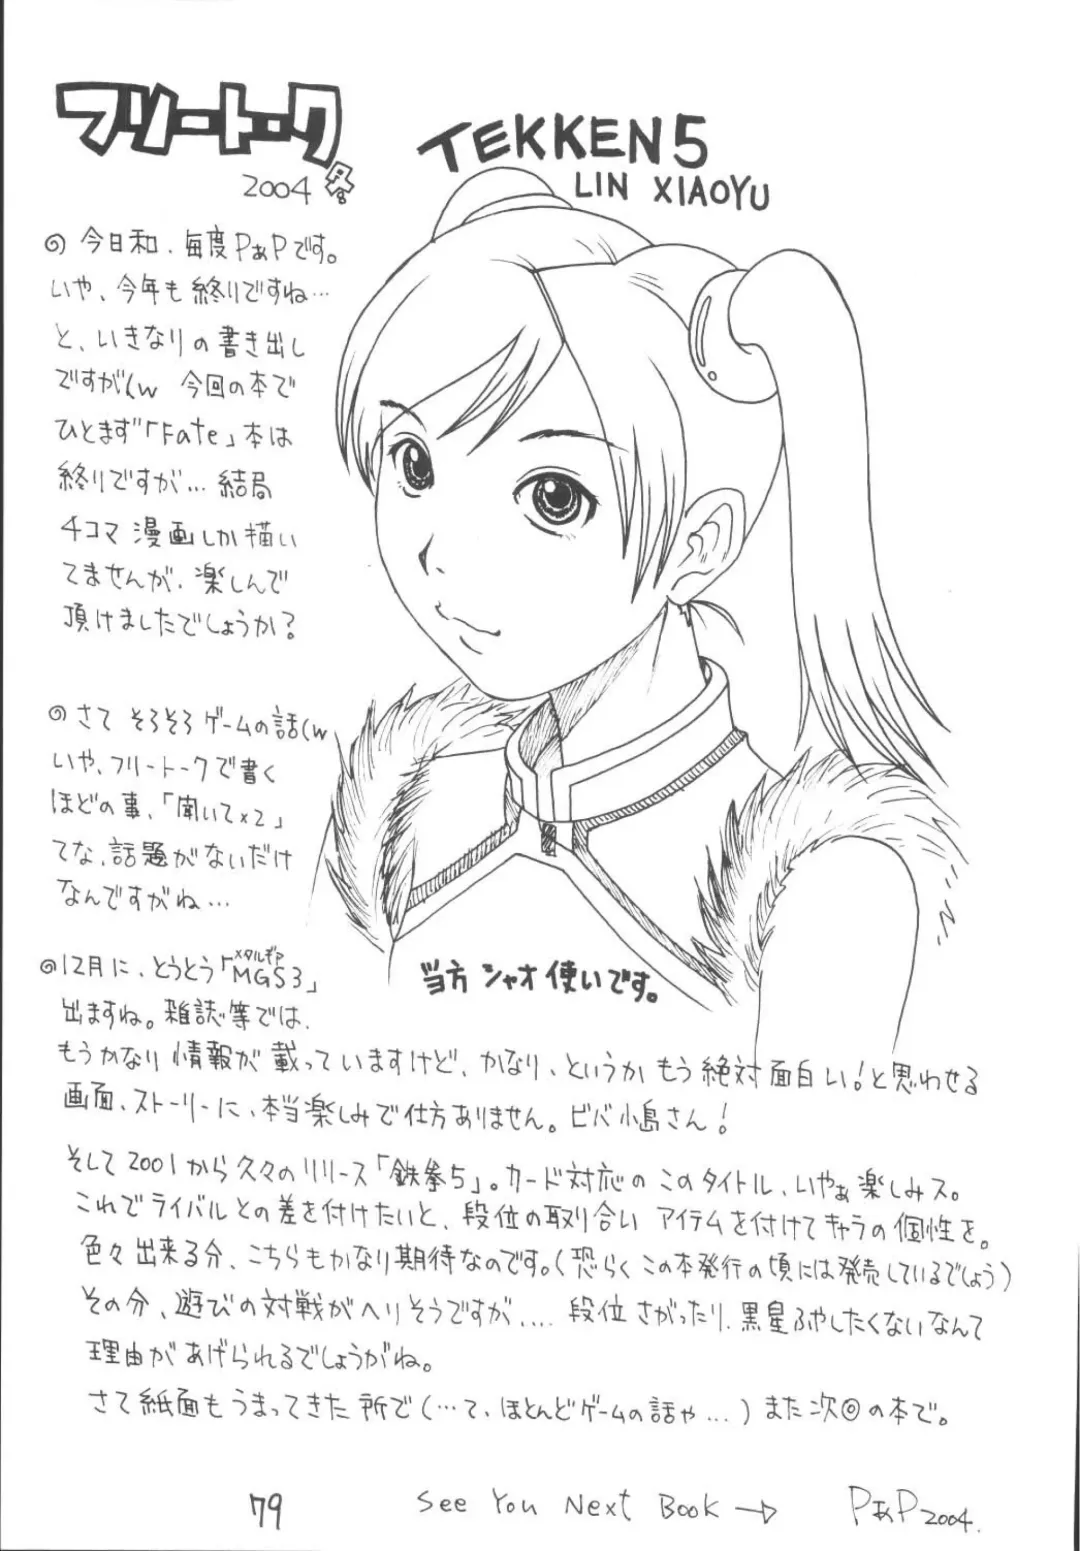 フリートーク
2004 冬
TEKKEN5
LIN XIAOYU
◎今日和、毎度PぁPです。
いや、今年も終りですね…
と、いきなりの書き出し
ですが(w 今回の本で
ひとまず「Fate」本は
終りですが…結局
4コマ漫画しか描い
てませんが、楽しんで
頂けましたでしょうか?
◎さて そろそろゲームの話(w
いや、フリートークで書く
ほどの事、「聞いて×2」
てな、話題がないだけ
なんですがね…
◎12月に、とうとう「MGS3」
メタルギア
出ますね。雑誌等では、
当方 シャオ使いです。
もうかなり情報が載っていますけど、かなり、というかもう絶対面白い!と思わせる
画面、ストーリーに、本当楽しみで仕方ありません。ビバ小島さん!
そして2001から久々のリリース「鉄拳5」。カード対応のこのタイトル、いやぁ楽しみス。
これでライバルとの差を付けたいと、段位の取り合い アイテムを付けてキャラの個性を。
色々出来る分、こちらもかなり期待なのです。(恐らくこの本発行の頃には発売しているでしょう)
その分、遊びの対戦がヘりそうですが.... 段位さがったり、黒星ふやしたくないなんて
理由があげられるでしょうがね。
さて紙面もうまってきた所で(…て、ほとんどゲームの話や...)また次◎の本で。
79
See You Next Book →
PぁP2004.